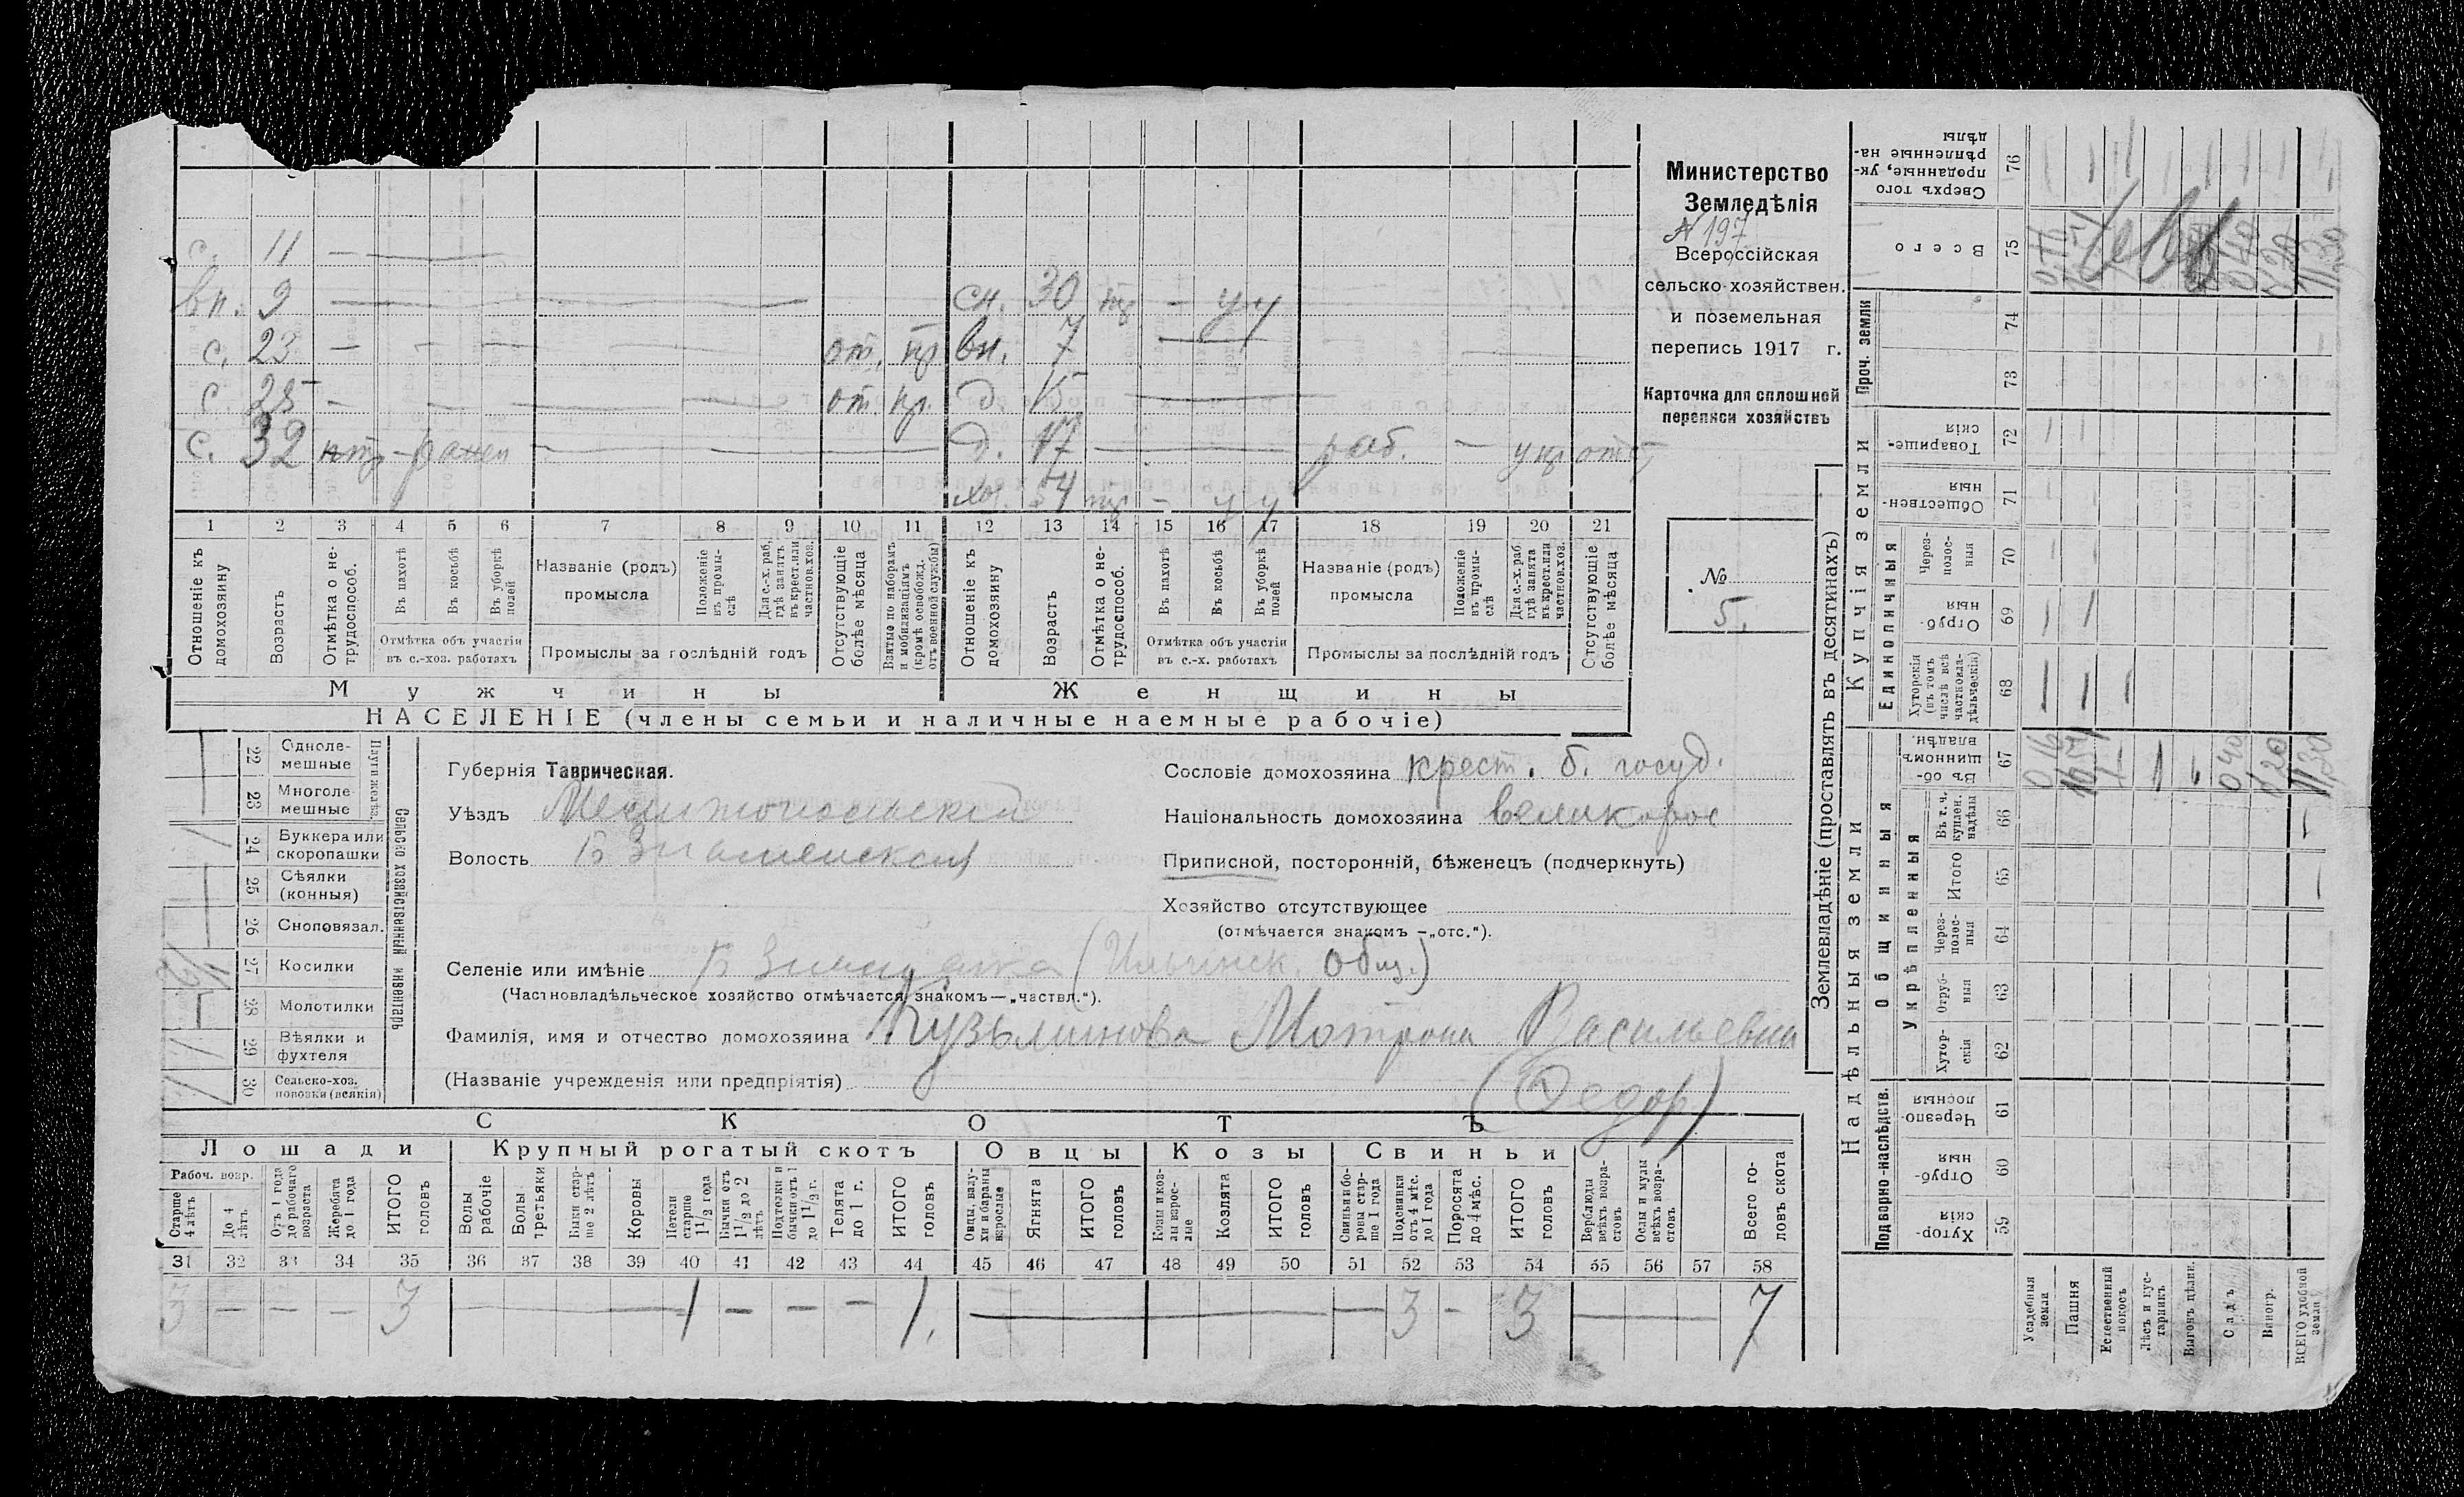 с. 11 —
вн. 9 — сн. 30 тр - у у
с. 23 — - — от. пр вн. 7 —
с. 25 - — от. пр. д. 15 —
с. 32 - ранен — д. 17 — раб. — у кр от
хоз. 54 тр - у у
1 2 3 4 5 6 7 8 9 10 11 12 13 14 15 16 17 18 19 20 21
Отношеніе къ домохозяину
Возрастъ
Отмѣтка о нетрудоспособ.
Въ пахотѣ
Въ косьбѣ
Въ уборкѣ полей
Отмѣтка объ участіи въ с.-хоз. работахъ
Названіе (родъ) промысла
Положеніе въ промыслѣ
Для с.-х. раб. гдѣ занятъ въ крест. или частнов. хоз.
Промыслы за послѣдній годъ
Отсутствующіе болѣе мѣсяца
Взятые по наборамъ и мобилизаціямъ (кромѣ освобожд. отъ военной службы)
Отношеніе къ домохозяину
Возрастъ
Отмѣтка о нетрудоспособ.
Въ пахотѣ
Въ косьбѣ
Въ уборкѣ полей
Отмѣтка объ участіи въ с.-х. работахъ
Названіе (родъ) промысла
Положеніе въ промыслѣ
Для с.-х. раб. гдѣ занята въ крест. или частнов. хоз.
Промыслы за послѣдній годъ
Отсутствующіе болѣе мѣсяца
Мужчины Женщины
НАСЕЛЕНІЕ (члены семьи и наличные наемные рабочіе)
Министерство
Земледѣлія
N 197
Всероссійская
сельско-хозяйствен.
и поземельная
перепись 1917 г.
Карточка для сплошной
переписи хозяйствъ
№
5.
22 Одноле-
мешные
23 Многоле-
мешные
Плуги желѣз.
24 Буккера или
скоропашки
25 Сѣялки
(конныя)
26 Сноповязал.
27 Косилки
28 Молотилки
29 Вѣялки и
фухтеля
30 Сельско-хоз.
повозки (всякія)
Сельско хозяйственный инвентарь
Губернія Таврическая.
Уѣздъ Мелитопольский
Волость Б Знаменская
Селеніе или имѣніе Б Знаменка (Ильинск. общ.)
(Частновладѣльческое хозяйство отмѣчается знакомъ—„частвл.“).
Фамилія, имя и отчество домохозяина Кузьминова Мотрона Васильевна
(Названіе учрежденія или предпріятія)
(Федор)
Сословіе домохозяина крест. б. госуд.
Національность домохозяина великорос
Приписной, посторонній, бѣженецъ (подчеркнуть)
Хозяйство отсутствующее
(отмѣчается знакомъ —„отс.“).
СКОТЪ
Лошади Крупный рогатый скотъ Овцы Козы Свиньи
Рабоч. возр.
Старше 4 лѣтъ
До 4 лѣтъ
Отъ 1 года до рабочаго возраста
Жеребята до 1 года
ИТОГО головъ
Волы рабочіе
Волы третьяки
Быки старше 2 лѣтъ
Коровы
Нетели старше 1 1/2 года
Бычки отъ 1 1/2 до 2 лѣтъ
Подтелки и бычки отъ 1 до 1 1/2 г.
Телята до 1 г.
ИТОГО головъ
Овцы, валухи и бараны взрослые
Ягнята
ИТОГО головъ
Козы и козлы взрослые
Козлята
ИТОГО головъ
Свиньи и боровы старше 1 года
Подсвинки отъ 4 мѣс. до 1 года
Поросята до 4 мѣс.
ИТОГО головъ
Верблюды всѣхъ возрастовъ
Ослы и мулы всѣхъ возрастовъ
Всего головъ скота
31 32 33 34 35 36 37 38 39 40 41 42 43 44 45 46 47 48 49 50 51 52 53 54 55 56 57 58
3 — — — 3 — 1 — — — 1. — — 3 - 3 — 7
Землевладѣніе (проставлять въ десятинахъ)
Надѣльныя земли Купчія земли Проч. земли
Подворно-наслѣдств. Общинныя Единоличныя
Укрѣпленныя
Хуторскія 59
Отрубныя 60
Черезполосныя 61
Хуторскія 62
Отрубныя 63
Черезполосныя 64
Итого 65
Въ т. ч. куплен. надѣлы 66
Въ общинномъ владѣн. 67
Хуторскія (въ томъ числѣ всѣ частновладѣльческія) 68
Отрубныя 69
Черезполосныя 70
Общественныя 71
Товарищескія 72
73
74
Всего 75
Сверхъ того проданные, укрѣпленные надѣлы 76
Усадебныя земли
Пашня
Естественный покосъ
Лѣсъ и кустарникъ
Выгонъ цѣлин.
Садъ
Виногр.
ВСЕГО удобной земли
0 40
0 20
11,30